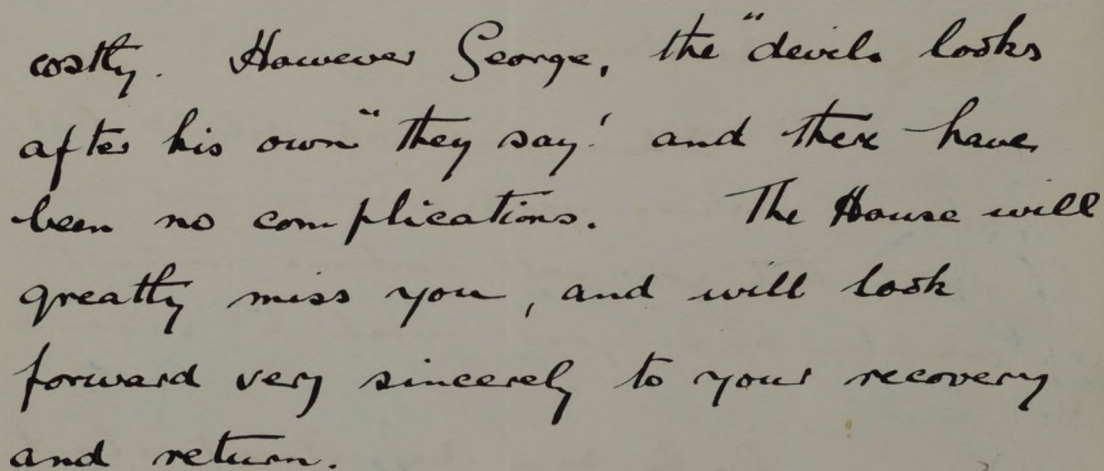 costly. However George, the "devil looks
after his own" they say! and there have
been no complications. The House will
greatly miss you, and will look
forward very sincerely to your recovery
and return.